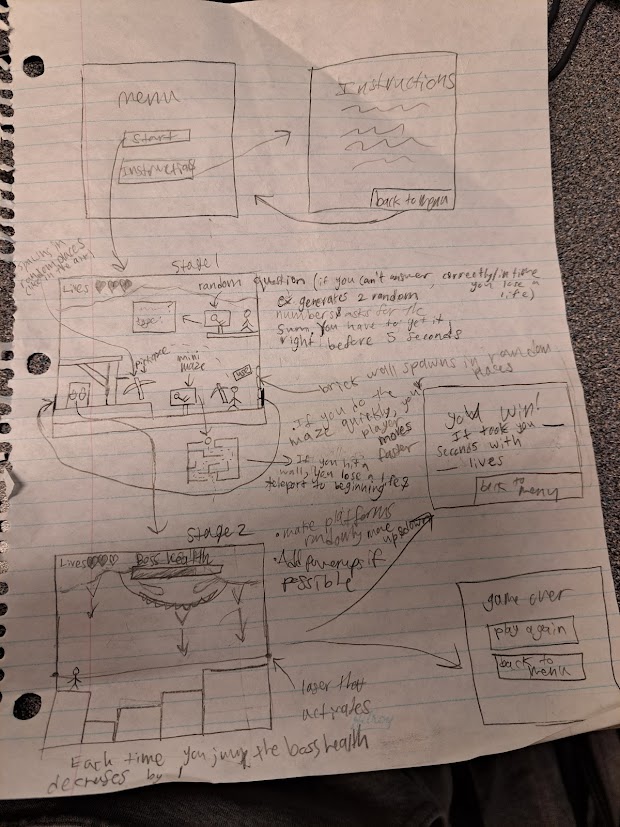 menu
Start
Instructions
Instructions
back to menu
spawns in
random places
Stage 1
Lives
random
question (if you can't answer correctly/in time
you lose a
life)
ex generates 2 random
numbers & asks for the
sum, you have to get it
right before 5 seconds
type:
pickaxe
mini
maze
brick wall spawns in random
places
If you do the
maze quickly, your
player
moves
faster
If you hit a
wall, you lose a life &
teleport to beginning
you win!
It took you __
seconds with
__ lives
back to
menu
Stage 2
Lives
Boss health
• make platforms
randomly move
up & down
• Add powerups if
possible
game over
play again
back to
menu
laser that
activates
Each time you jump, the boss health
decreases by 1